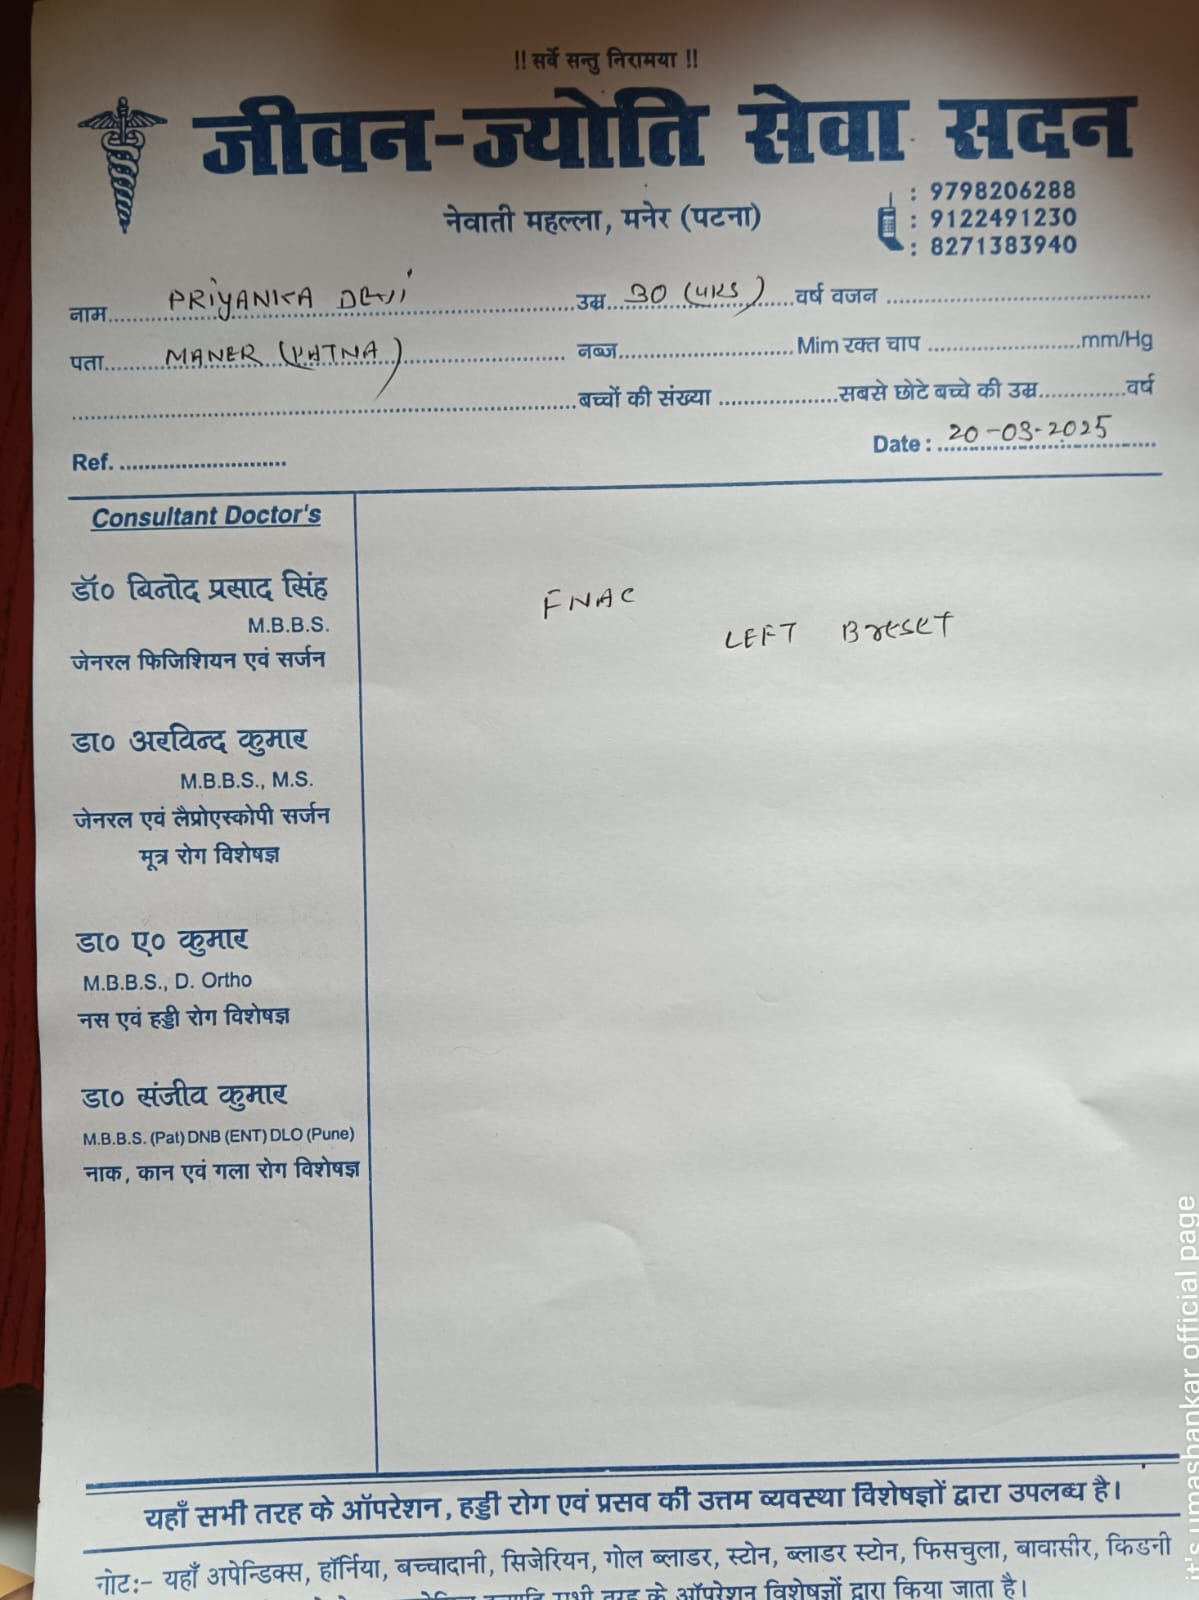 !! सर्वे सन्तु निरामया !!
जीवन-ज्योति सेवा सदन
नेवाती महल्ला, मनेर (पटना)
: 9798206288
: 9122491230
: 8271383940
नाम PRIYANKA DEVI उम्र 30 (YRS) वर्ष वजन
पता MANER (PATNA) नब्ज Mim रक्त चाप mm/Hg
बच्चों की संख्या सबसे छोटे बच्चे की उम्र वर्ष
Ref. Date : 20-03-2025
Consultant Doctor's
डॉ० बिनोद प्रसाद सिंह
M.B.B.S.
जेनरल फिजिशियन एवं सर्जन
FNAC
LEFT Breset
डा० अरविन्द कुमार
M.B.B.S., M.S.
जेनरल एवं लैप्रोएस्कोपी सर्जन
मूत्र रोग विशेषज्ञ
डा० ए० कुमार
M.B.B.S., D. Ortho
नस एवं हड्डी रोग विशेषज्ञ
डा० संजीव कुमार
M.B.B.S. (Pat) DNB (ENT) DLO (Pune)
नाक, कान एवं गला रोग विशेषज्ञ
यहाँ सभी तरह के ऑपरेशन, हड्डी रोग एवं प्रसव की उत्तम व्यवस्था विशेषज्ञों द्वारा उपलब्ध है।
नोट:- यहाँ अपेन्डिक्स, हॉर्निया, बच्चादानी, सिजेरियन, गोल ब्लाडर, स्टोन, ब्लाडर स्टोन, फिसचुला, बावासीर, किडनी
सभी तरह के ऑपरेशन विशेषज्ञों द्वारा किया जाता है।
it's umashankar official page